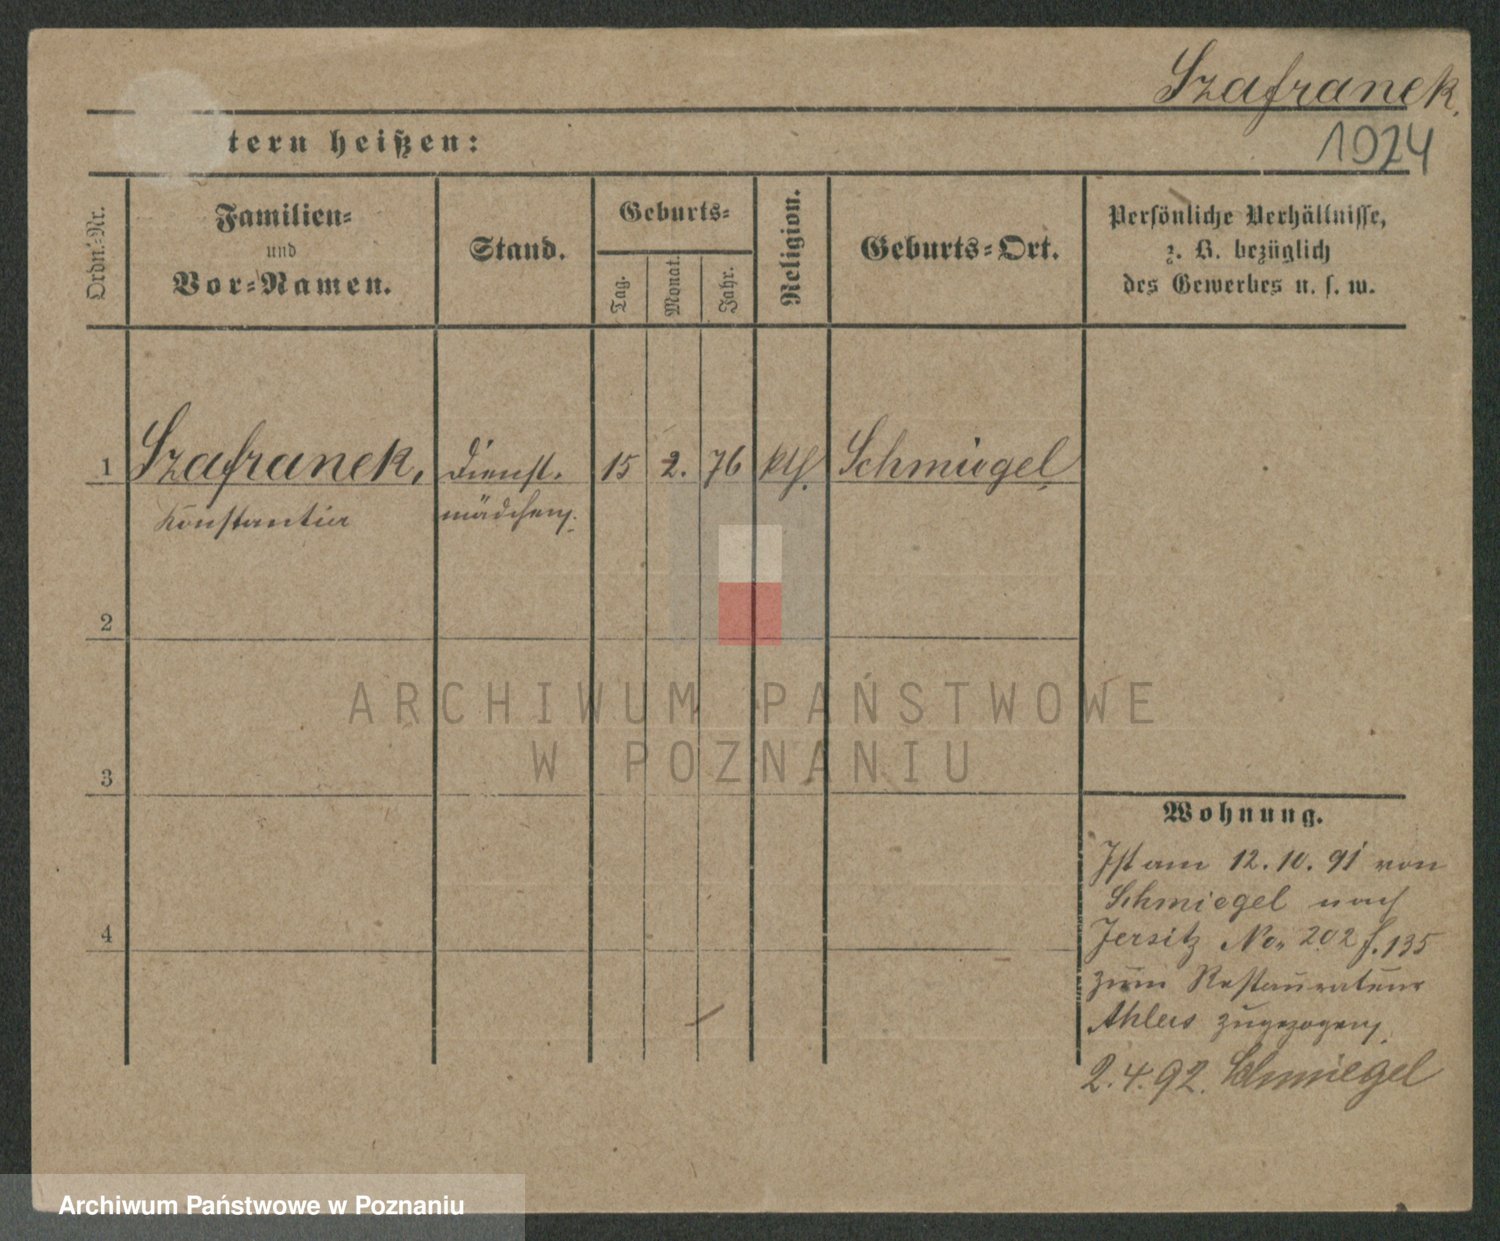 Szafranek.
1924
tern heißen:
Ordn.-Nr.
Familien-
und
Vor-Namen.
Stand.
Geburts-
Tag.
Monat.
Jahr.
Religion.
Geburts-Ort.
Persönliche Verhältnisse,
z. B. bezüglich
des Gewerbes u. s. w.
1 Szafranek, Dienst- 15 2. 76 kth. Schmiegel
Konstantia mädchen.
2
3
4
ARCHIWUM PAŃSTWOWE
W POZNANIU
Wohnung.
Ist am 12.10.91 von
Schmiegel nach
Jersitz No. 202 f. 135
zum Restaurateur
Ahlers zugezogen.
2.4.92. Schmiegel
Archiwum Państwowe w Poznaniu